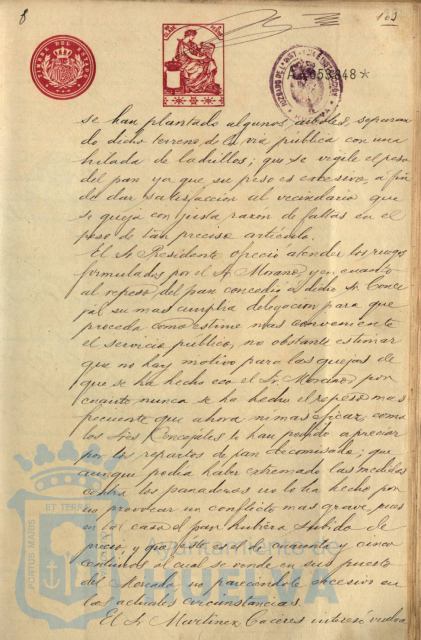 8
163
TIMBRE DEL ESTADO
A4.053.848*
se han plantado algunos árboles, separan
do dicho terreno de la vía pública con una
hilada de ladrillos; que se vigile el peso
del pan ya que su peso es excesivo, a fin
de dar satisfacción al vecindario que
se queja con justa razón de faltas en el
peso de tan preciso artículo.
El Sr. Presidente ofreció atender los ruegos
formulados por el Sr. Moreno, y en cuanto
al repeso del pan concedió a dicho Sr. Conce
jal su mas cumplida delegación para que
proceda como estime mas conveniente
el servicio público, no obstante estimar
que no hay motivo para las quejas de
que se ha hecho eco el Sr. Moreno, por
cuanto nunca se ha hecho el repeso mas
frecuente que ahora ni mas eficaz, como
los Sres Concejales lo han podido apreciar
por los repartos de pan decomisado; que
aunque podia haber extremado las medidas
contra los panaderos no lo ha hecho por
no provocar un conflicto mas grave, pues
en tal caso el pan hubiera subido de
precio, y que este es el de sesenta y cinco
centimos al cual se vende en sus puestos
del Mercado no pareciéndole excesivo en
las actuales circunstancias.
El Sr. Martinez Cáceres interesó vuelva
PORTUS MARIS ET TERRAE
Ayuntamiento de
HUELVA